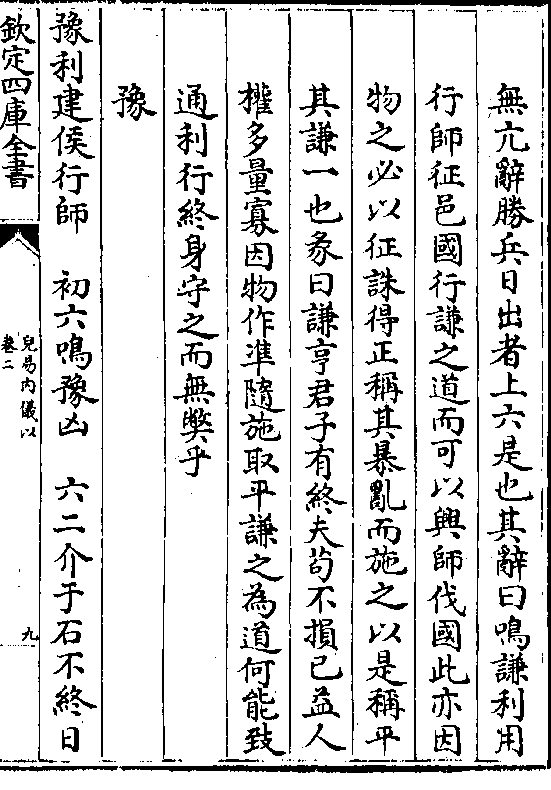 無亢辭勝兵日出者上六是也其辭曰鳴謙利用
行師征邑國行謙之道而可以興師伐國此亦因
物之必以征誅得正稱其暴亂而施之以是稱平
其謙一也彖曰謙亨君子有終夫茍不損已益人
權多量寡因物作準隨施取平謙之為道何能致
通利行終身守之而無弊乎
豫
豫利建侯行師　初六鳴豫凶　六二介于石不終日
欽定四庫全書
兒易內儀以
卷二
九